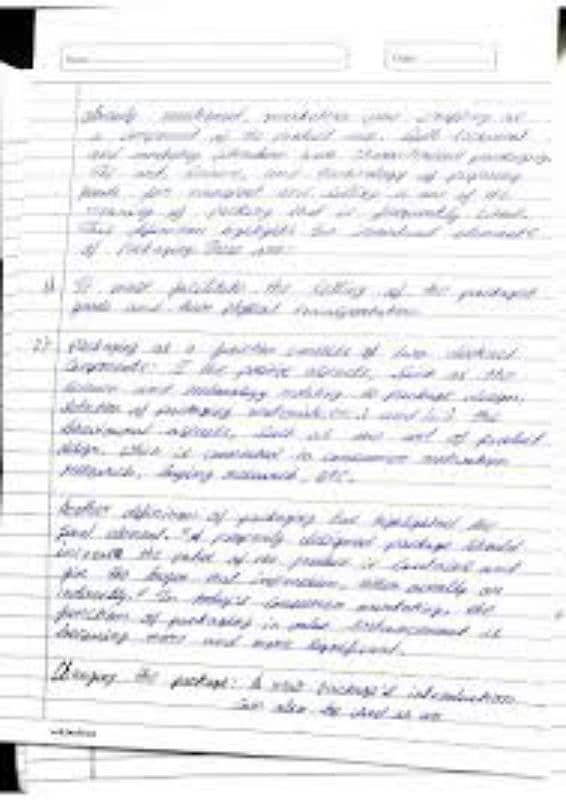 already mentioned, marketers view packaging as
a component of the product mix. Both technical
and marketing literature have characterized packaging
art, science, and technology of preparing
goods for transport and selling is one of the
meaning of packing that is frequently used.
This definition highlights two important elements
of packaging. These are:
1) It must facilitate the selling of the packaged
goods and their physical transportation.
2) Packaging as a function consists of two distinct
components: I the positive aspects, such as the
science and technology relating to package design,
selection of packaging materials etc., and the
behavioural aspects, such as the art of product
design, which is connected to consumer motivation
research, buying research, etc.
Another definition of packaging has highlighted the
final element. "A properly designed package should
the value of the product it contains and
give the buyer that impression, either directly or
indirectly." In today's consumer marketing, the
function of packaging in value enhancement is
becoming more and more significant.
Changing the package: A new package's introduction
can also be used as an